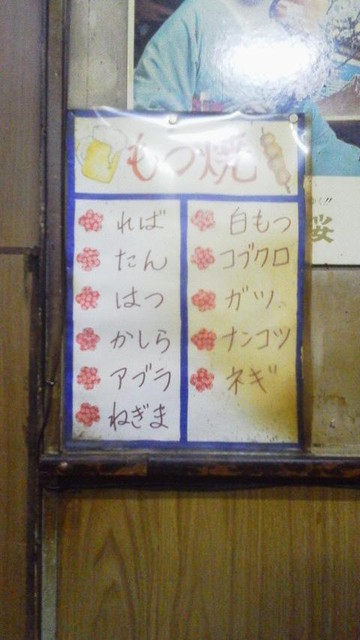 もつ焼
ればば
たん
はつ
かしら
アブラ
ねぎま
白もつ
コブクロ
ガツ
ナンコツ
ネギ
桜